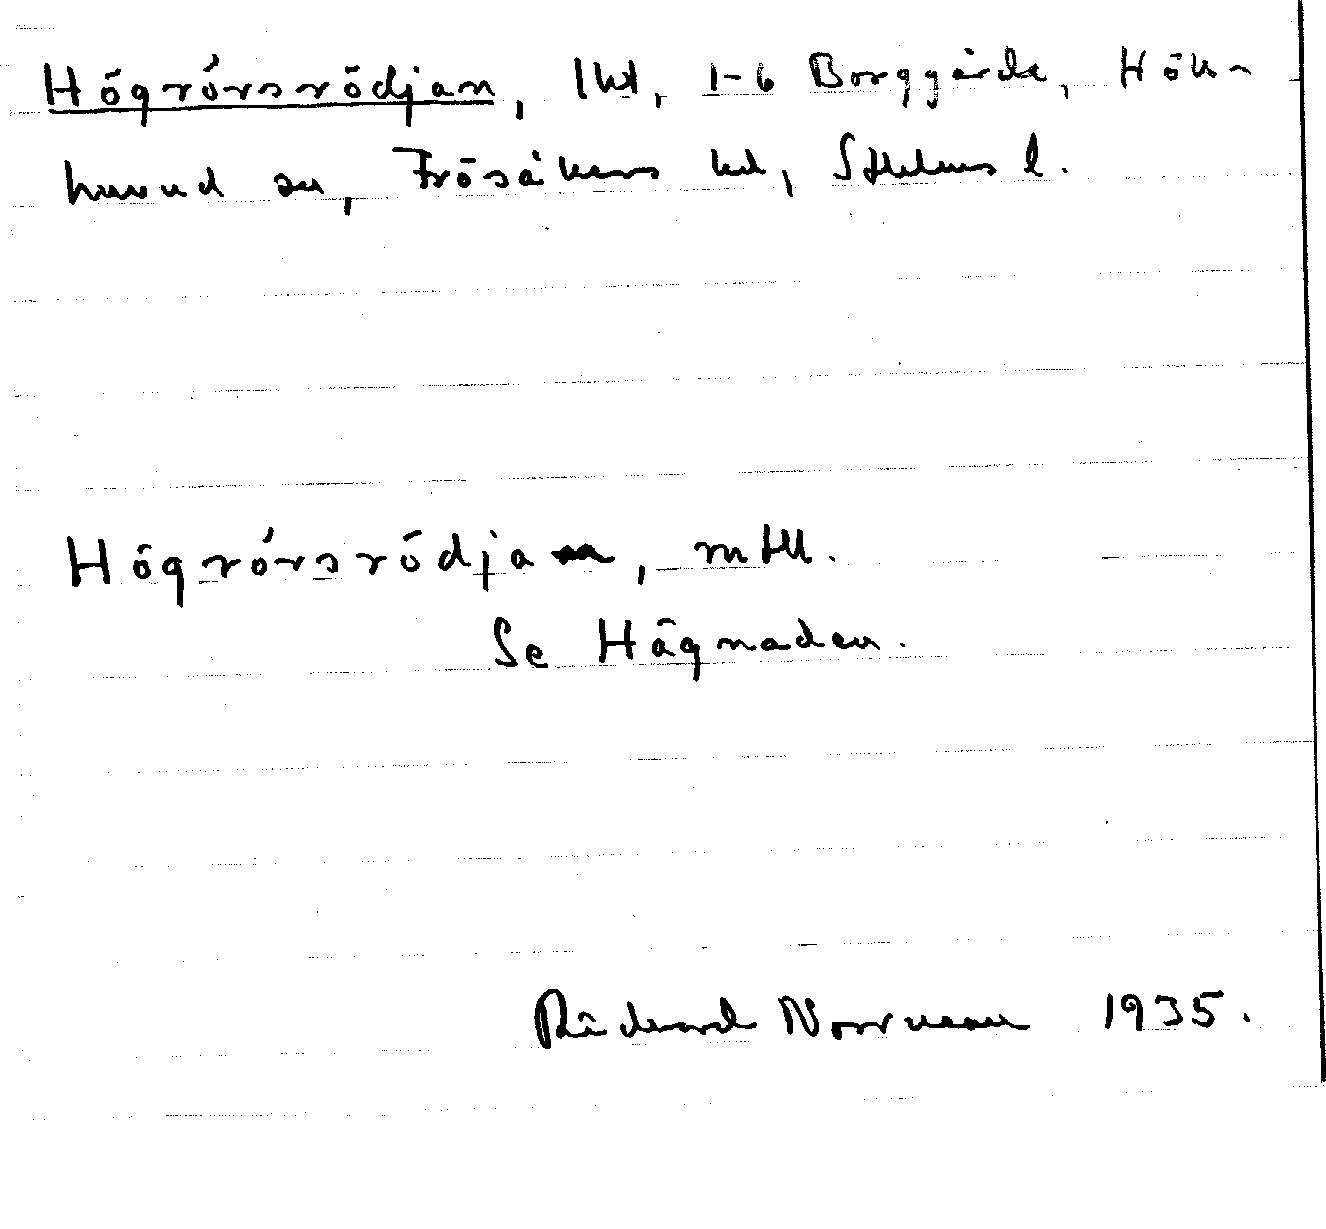 Högrörsrödjan, lht, 1-6 Borggärde, Hök-
huvud sn, Frösåkers hd, Sthlms l.
Högrörsrödjan, mtll.
Se Hägnaden.
Rickard Norrman 1935.